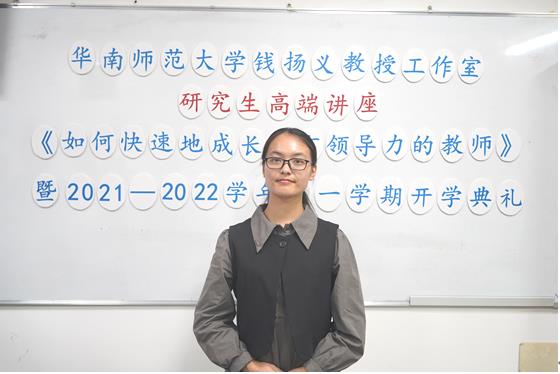 华南师范大学钱扬义教授工作室
研究生高端讲座
《如何快速地成长 领导力的教师》
暨2021—2022学年 一学期开学典礼